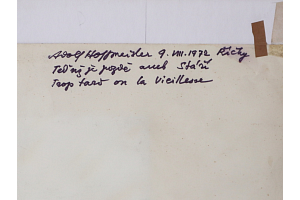 Adolf Hoffmeister 9. VIII. 1972 Říčky
Teď už je pozdě aneb Stáří
Trop tard ou la Vieillesse